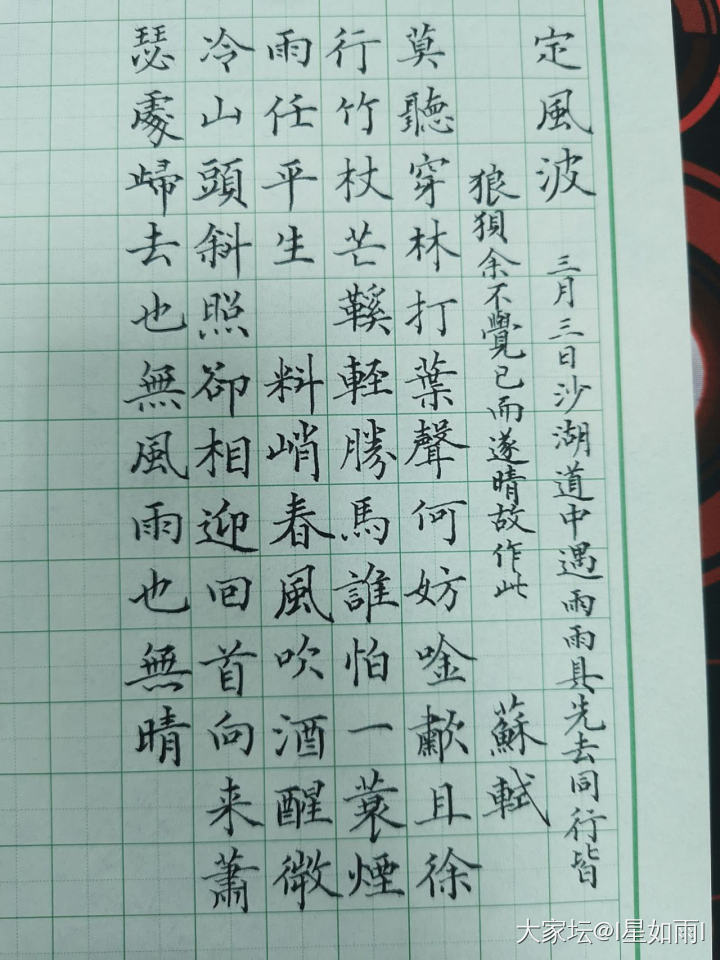 定風波 三月三日沙湖道中遇雨雨具先去同行皆
狼狽余不覺已而遂晴故作此 蘇軾
莫聽穿林打葉聲何妨唫歗且徐
行竹杖芒鞵軽勝馬誰怕一蓑煙
雨任平生 料峭春風吹酒醒微
冷山頭斜照卻相迎回首向来蕭
瑟處歸去也無風雨也無晴
大家坛@l星如雨l